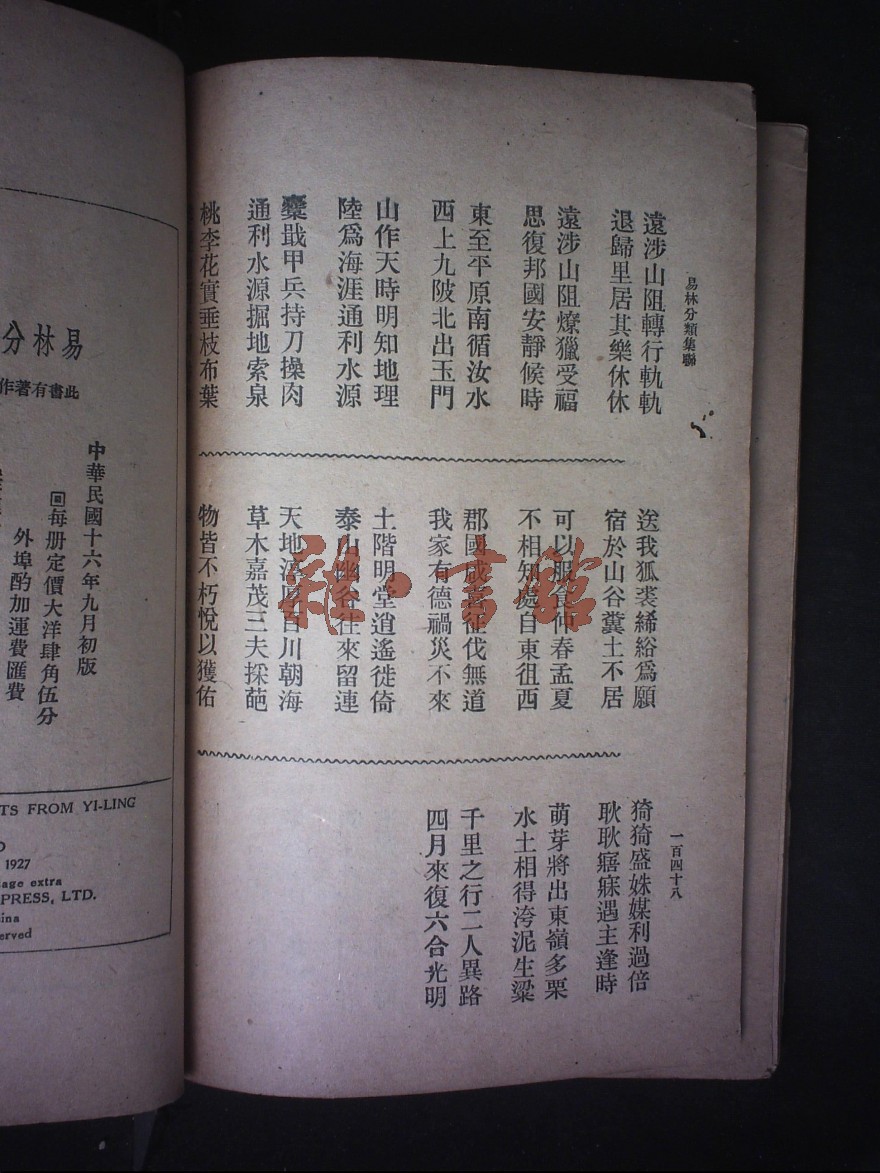 易林分類集聯
遠涉山阻轉行軌軌
退歸里居其樂休休
遠涉山阻燎獵受福
思復邦國安靜候時
東至平原南循汝水
西上九陂北出玉門
山作天時明知地理
陸爲海涯通利水源
櫜戢甲兵持刀操肉
通利水源掘地索泉
桃李花實垂枝布葉
送我狐裘絺綌爲願
宿於山谷糞土不居
可以服食仲春孟夏
不相知處自東徂西
郡國咸喜征伐無道
我家有德禍災不來
土階明堂逍遙徙倚
泰山幽谷往來留連
天地淳厚百川朝海
草木嘉茂三夫採葩
物皆不朽悅以獲佑
一百四十八
猗猗盛姝媒利過倍
耿耿寤寐遇主逢時
萌芽將出東嶺多栗
水土相得洿泥生粱
千里之行二人異路
四月來復六合光明
易林分
此書有著作
中華民國十六年九月初版
回每册定價大洋肆角伍分
外埠酌加運費匯費
TS FROM YI-LING
1927
age extra
PRESS, LTD.
ina
erved